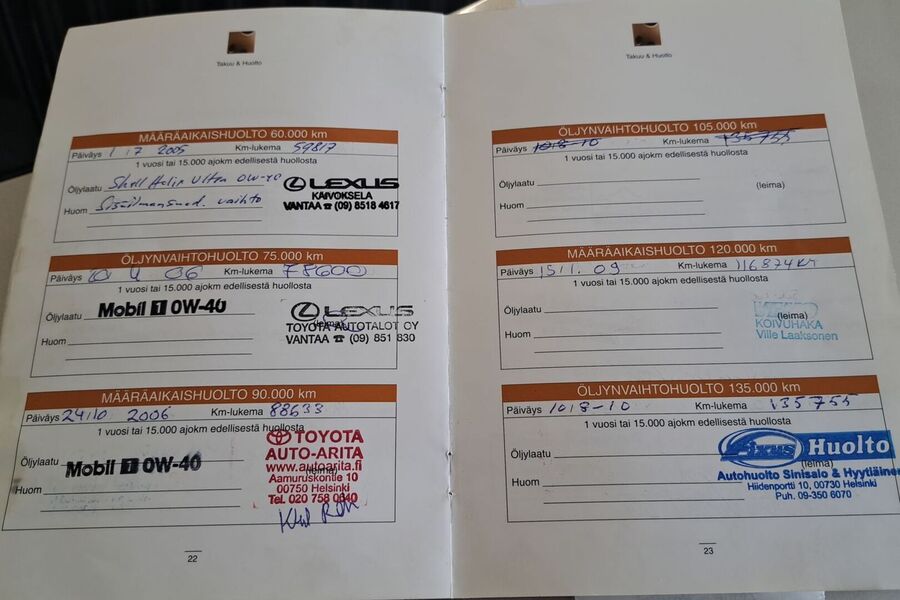 Takuu & Huolto
MÄÄRÄAIKAISHUOLTO 60.000 km
Päiväys 1 17 2005 Km-lukema 59817
1 vuosi tai 15.000 ajokm edellisestä huollosta
Öljylaatu Shell Helix Ultra 0W-40
Huom Sisäilmansuod. vaihto
LEXUS
KAIVOKSELA
VANTAA ☎ (09) 8518 4617
ÖLJYNVAIHTOHUOLTO 75.000 km
Päiväys 10 4 06 Km-lukema 78600
1 vuosi tai 15.000 ajokm edellisestä huollosta
Öljylaatu Mobil 1 0W-40
Huom
LEXUS
(leima)
TOYOTA AUTOTALOT OY
VANTAA ☎ (09) 851 830
MÄÄRÄAIKAISHUOLTO 90.000 km
Päiväys 24 10 2006 Km-lukema 88633
1 vuosi tai 15.000 ajokm edellisestä huollosta
Öljylaatu Mobil 1 0W-40
Huom
TOYOTA
AUTO-ARITA
www.autoarita.fi
(leima)
Aamuruskontie 10
00750 Helsinki
Tel. 020 758 0640
22
Takuu & Huolto
ÖLJYNVAIHTOHUOLTO 105.000 km
Päiväys 1018-10 Km-lukema 135755
1 vuosi tai 15.000 ajokm edellisestä huollosta
Öljylaatu (leima)
Huom
MÄÄRÄAIKAISHUOLTO 120.000 km
Päiväys 1511.09 Km-lukema 116874km
1 vuosi tai 15.000 ajokm edellisestä huollosta
Öljylaatu (leima)
Huom
KOIVUHAKA
Ville Laaksonen
ÖLJYNVAIHTOHUOLTO 135.000 km
Päiväys 1018-10 Km-lukema 135755
1 vuosi tai 15.000 ajokm edellisestä huollosta
Öljylaatu (leima)
Huom
Fixus Huolto
Autohuolto Sinisalo & Hyytiäinen
Hiidenportti 10, 00730 Helsinki
Puh. 09-350 6070
23